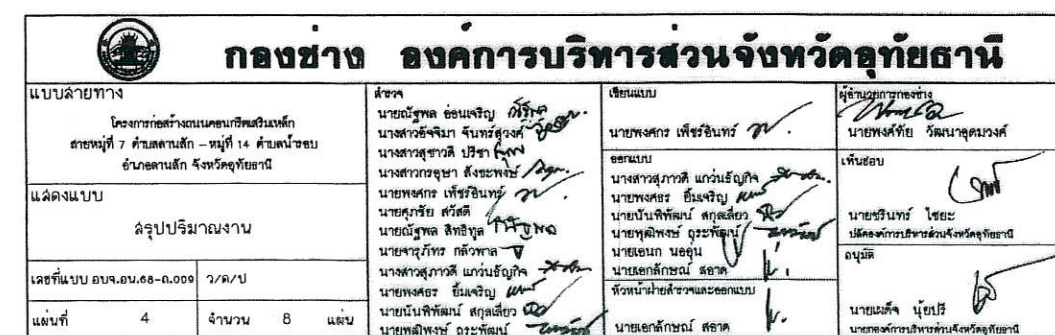 กองช่าง องค์การบริหารส่วนจังหวัดอุทัยธานี
แบบสายทาง
โครงการก่อสร้างถนนคอนกรีตเสริมเหล็ก
สายหมู่ที่ 7 ตำบลลานสัก - หมู่ที่ 14 ตำบลน้ำรอบ
อำเภอลานสัก จังหวัดอุทัยธานี
แสดงแบบ
สรุปปริมาณงาน
เลขที่แบบ อบจ.อน.68-ถ.009 ว/ด/ป
แผ่นที่ 4 จำนวน 8 แผ่น
สำรวจ
นายณัฐพล อ่อนเจริญ
นางสาวอัจจิมา จันทร์สุวงค์
นางสาวสุชาวดี ปรีชา
นางสาวกรอุษา สังขะพงษ์
นายพงศกร เพ็ชร์อินทร์
นายศุภชัย สวัสดี
นายณัฐพล สิทธิทูล
นายจารุภัทร กลัวพาล
นางสาวสุภาวดี แกว่นธัญกิจ
นายพงศธร อิ่มเจริญ
นายนันพิพัฒน์ สกุลเลี่ยว
นายพุฒิพงษ์ ถุระพัฒน์
เขียนแบบ
นายพงศกร เพ็ชร์อินทร์
ออกแบบ
นางสาวสุภาวดี แกว่นธัญกิจ
นายพงศธร อิ่มเจริญ
นายนันพิพัฒน์ สกุลเลี่ยว
นายพุฒิพงษ์ ถุระพัฒน์
นายเอนก นออุ่น
นายเอกลักษณ์ สอาด
หัวหน้าฝ่ายสำรวจและออกแบบ
นายเอกลักษณ์ สอาด
ผู้อำนวยการกองช่าง
นายพงค์ทัย วัฒนาอุดมวงศ์
เห็นชอบ
นายชรินทร์ ไชยะ
ปลัดองค์การบริหารส่วนจังหวัดอุทัยธานี
อนุมัติ
นายเผด็จ นุ้ยปรี
นายกองค์การบริหารส่วนจังหวัดอุทัยธานี